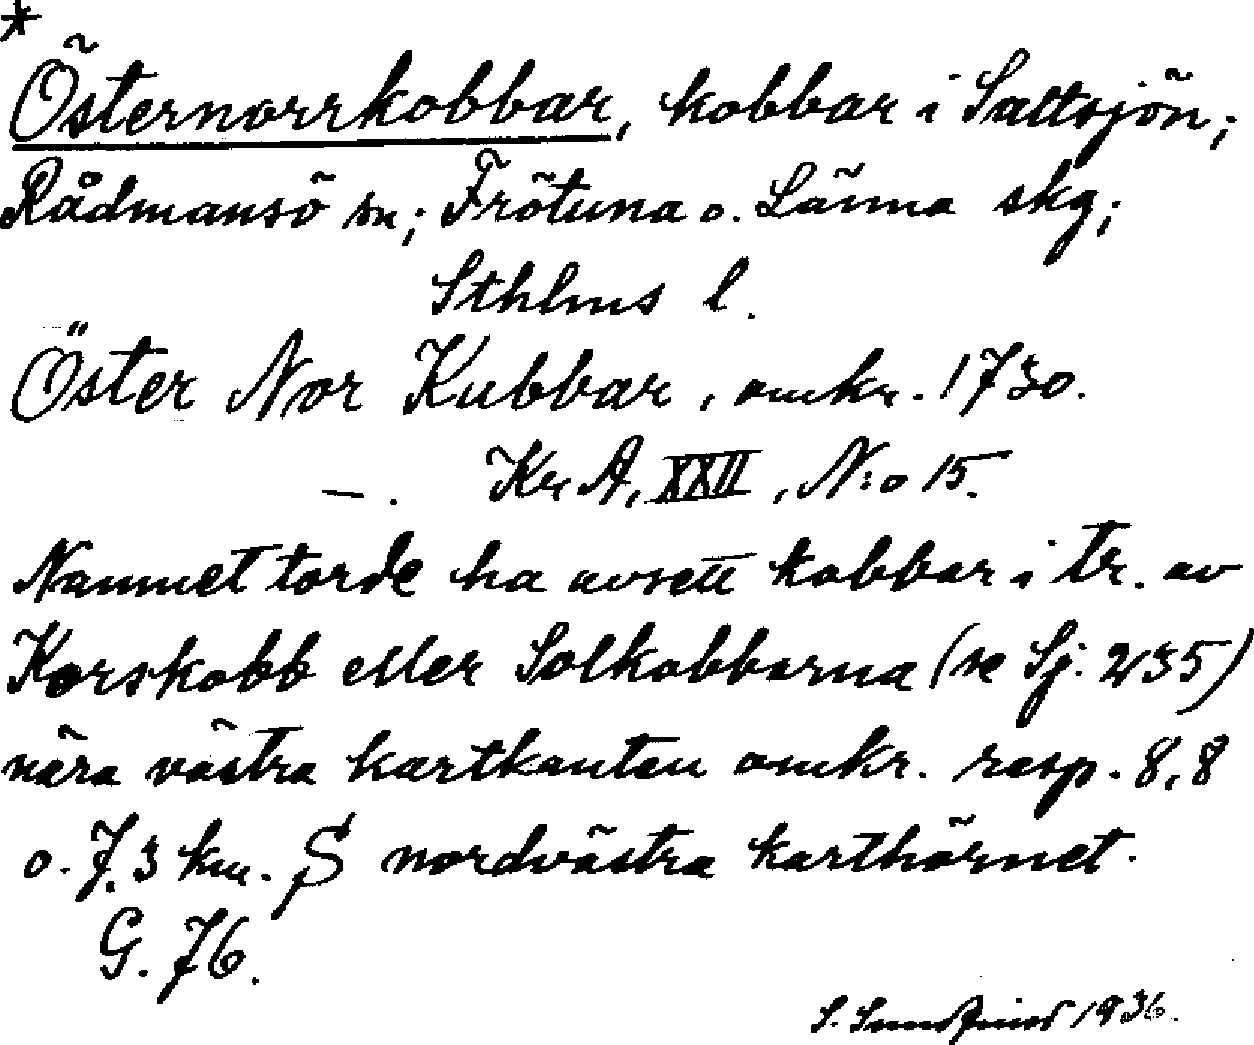 *
Östernorrkobbar, kobbar i Saltsjön;
Rådmansö sn; Frötuna o. Länna skg;
Sthlms l.
Öster Nor Kubbar, omkr. 1730.
—. Kr A, XXII, N:o 15.
Namnet torde ha avsett kobbar i tr. av
Korskobb eller Solkobbarna (se Sj. 235)
nära västra kartkanten omkr. resp. 8,8
o. 7,3 km. S nordvästra karthörnet.
G. 76.
S. 1936.